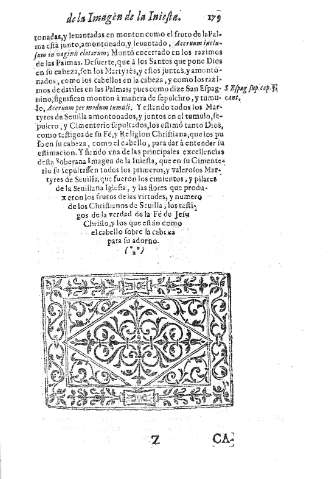 de la Imagen de la Iniesta. 179
tonadas, y leuantadas en monton como el fruto de la Pal-
ma està junto, amontonado, y leuantado, Aceruum inclu-
sum in vagina elatarum; Montò encerrado en los razimos
de las Palmas. De suerte, que à los Santos que pone Dios
en su cabeza, son los Martyres, y estos juntos, y amonto-
nados, como los cabellos en la cabeza, y como los razi-
mos de datiles en las Palmas; pues como dize San Espag-
nino, significan monton à manera de sepulchro, y tumu-
lo, Aceruum per modum tumuli. Y estando todos los Mar-
tyres de Seuilla amontonados, y juntos en el tumulo, se-
pulcro, y Cimenterio sepultados, los estimò tanto Dios,
como testigos de su Fè, y Religion Christiana, que los pu-
so en su cabeza, como el cabello, para dar à entender su
estimacion. Y siendo vna de las principales excelencias
desta Soberana Imagen de la Iniesta, que en su Cimente-
rio se sepultassen todos los primeros, y valerosos Mar-
tyres de Seuilla, que fueron los cimientos, y pilares
de la Seuillana Iglesia, y las flores que produ-
xeron los frutos de las virtudes, y numero
de los Christianos de Seuilla, los testi-
gos de la verdad de la Fè de Jesu
Christo, y los que están como
el cabello sobre la cabeza
para su adorno.
S. Espag. sup. cap. 7.
cant.
Z CA-